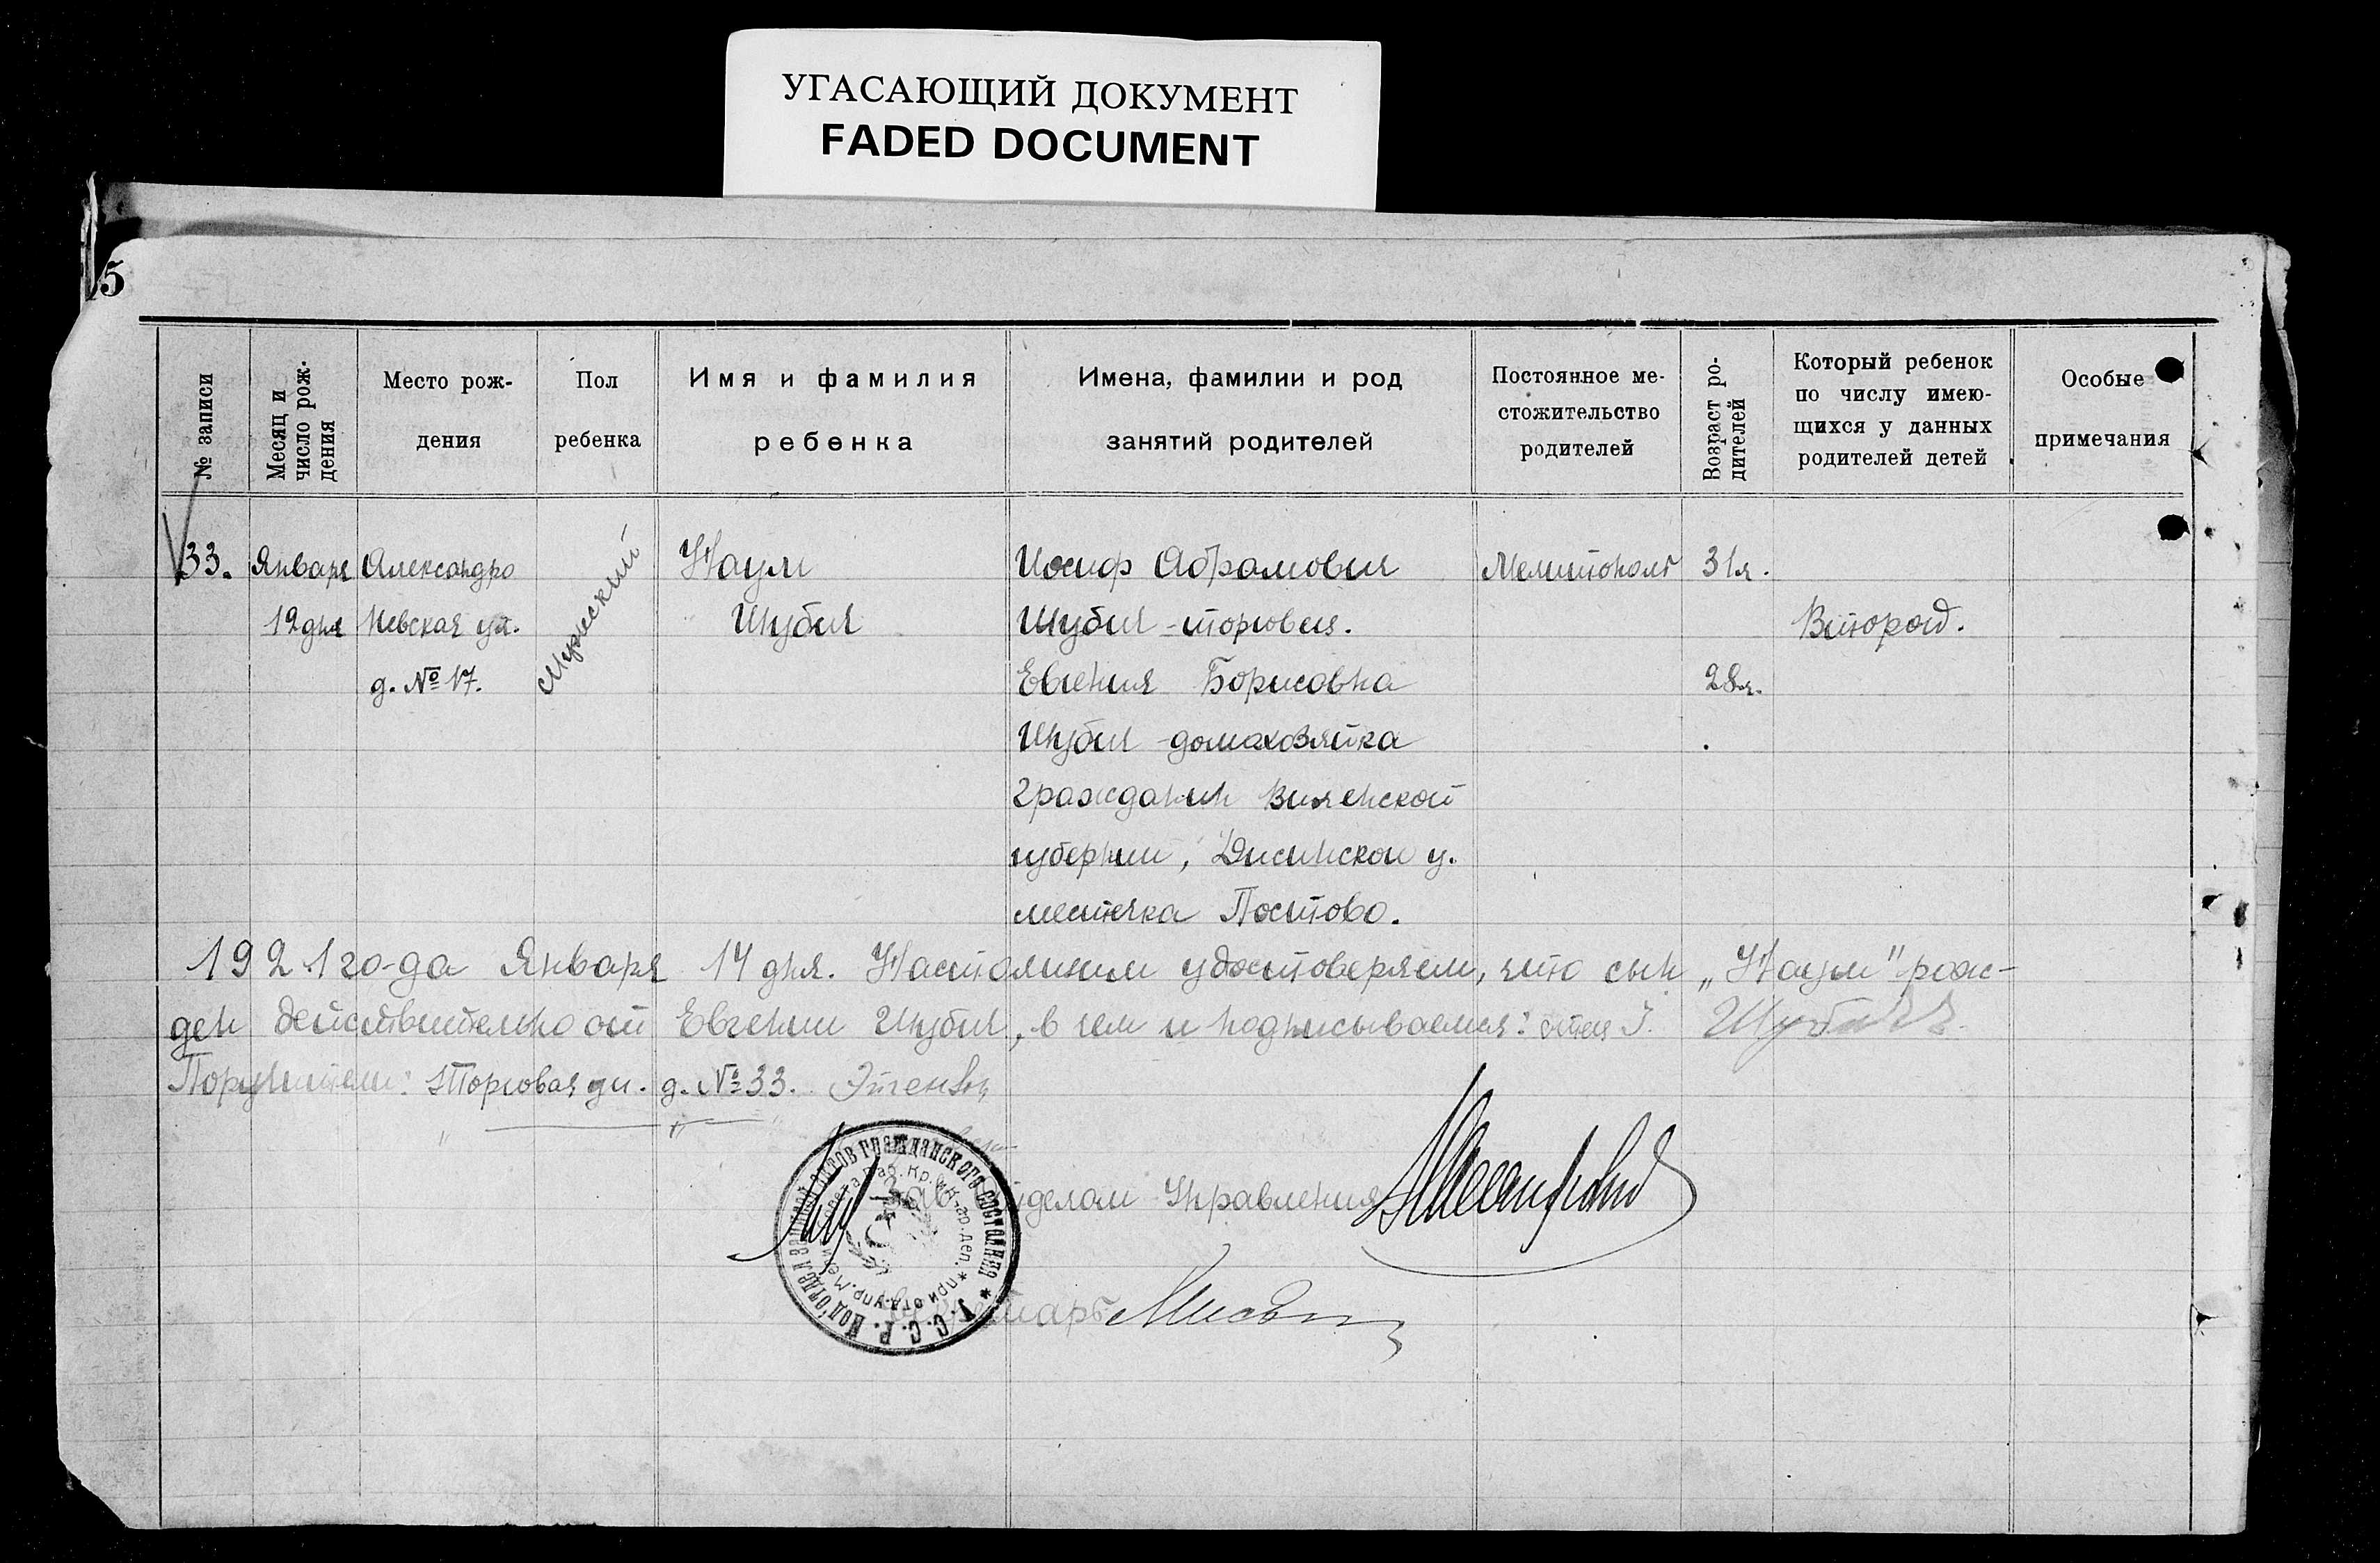 УГАСАЮЩИЙ ДОКУМЕНТ
FADED DOCUMENT
5
№ записи
Месяц и
число рож-
дения
Место рож-
дения
Пол
ребенка
Имя и фамилия
ребенка
Имена, фамилии и род
занятий родителей
Постоянное ме-
стожительство
родителей
Возраст ро-
дителей
Который ребенок
по числу имею-
щихся у данных
родителей детей
Особые
примечания
33.
Января
12 дня
Александро
Невская ул.
д. № 17.
Мужеский
Наум
Шубич
Иосиф Абрамович
Шубич - торговец.
Евгения Борисовна
Шубич - домахозяйка
гражданин Виленской
губернии, Дисинской у.
местечка Постово.
Мелитополь
31 л.
28 л.
Второй.
1921 го-да Января 14 дня. Настоящим удостоверяем, что сын „Наум" рож-
ден действительно от Евгении Шубич, в чем и подписываемся: отец І. Шубичъ.
Поручители: Торговая ул. д. № 33.
Зав. отделом Управления
Секретарь
У.С.С.Р. Под'отдел записей актов гражданского состояния *
при отд. упр. Мелит. Совета Раб. Кр. и Кр.-ар. деп. *